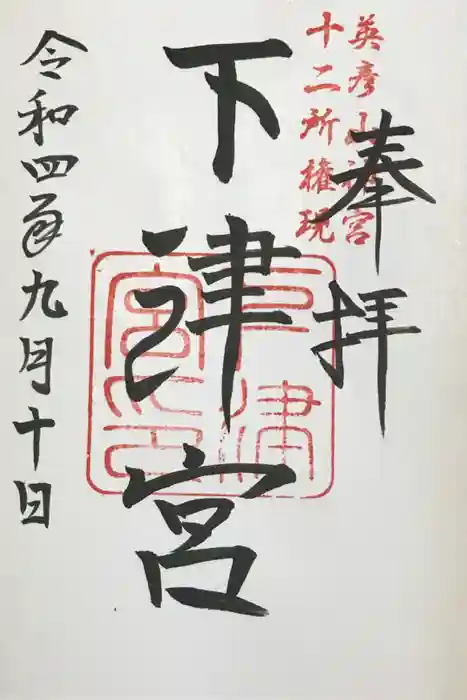 英彦山神宮
十二所権現
奉拝
下津宮
下津宮之印
令和四年九月十日